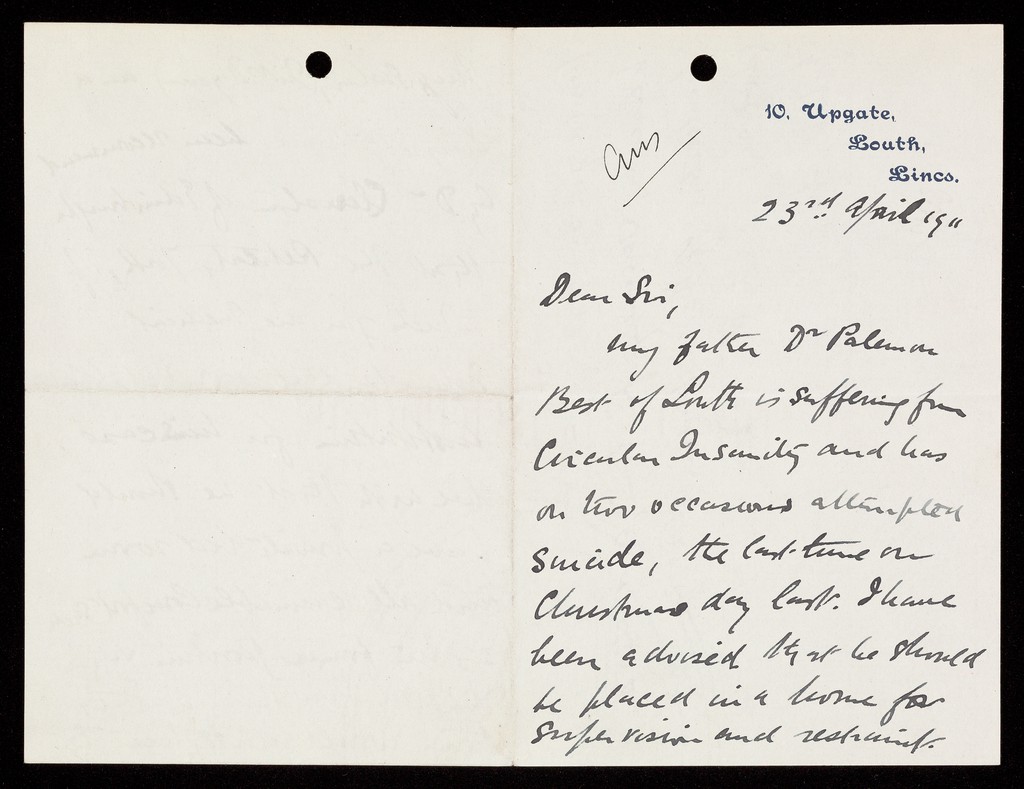 10, Upgate,
Louth,
Lincs.
Ans
23rd April 1911
Dear Sir,
my father Dr Palemon
Best of Louth is suffering from
Circular Insanity and has
on two occasions attempted
Suicide, the last time on
Christmas day last. I have
been advised that he should
be placed in a home for
supervision and restraint.